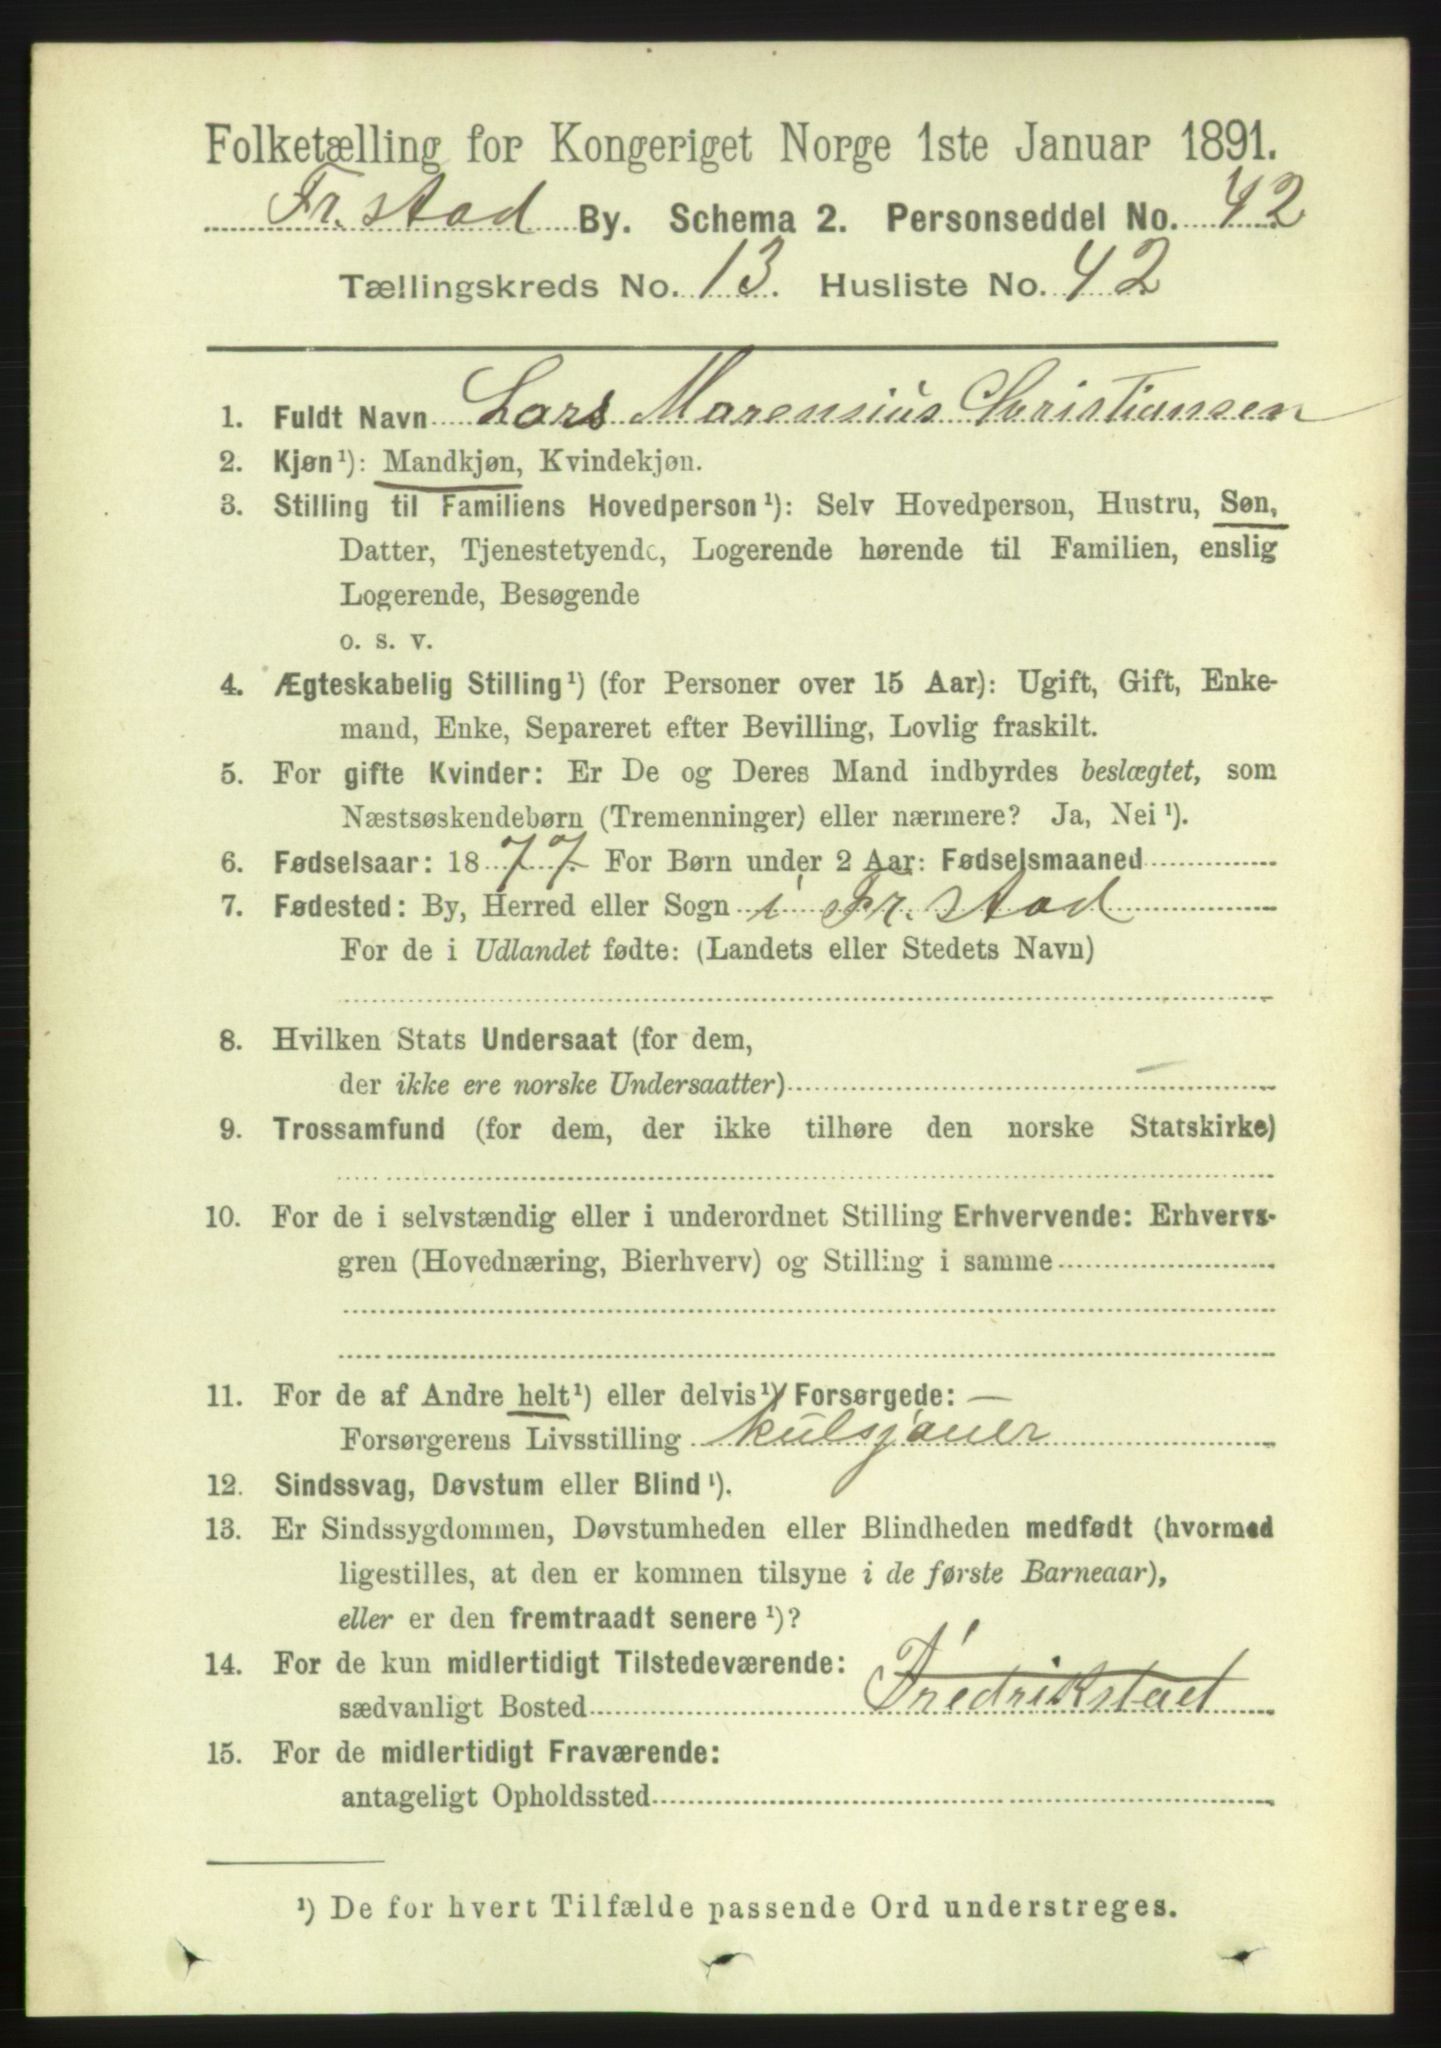 Folketælling for Kongeriget Norge 1ste Januar 1891.
Fr.stad By. Schema 2. Personseddel No. 42
Tællingskreds No. 13. Husliste No. 42
1. Fuldt Navn Lars Marensius Christiansen
2. Kjøn¹): Mandkjøn, Kvindekjøn.
3. Stilling til Familiens Hovedperson¹): Selv Hovedperson, Hustru, Søn,
Datter, Tjenestetyende, Logerende hørende til Familien, enslig
Logerende, Besøgende
o. s. v.
4. Ægteskabelig Stilling¹) (for Personer over 15 Aar): Ugift, Gift, Enke-
mand, Enke, Separeret efter Bevilling, Lovlig fraskilt.
5. For gifte Kvinder: Er De og Deres Mand indbyrdes beslægtet, som
Næstsøskendebørn (Tremenninger) eller nærmere? Ja, Nei¹).
6. Fødselsaar: 1877. For Børn under 2 Aar: Fødselsmaaned
7. Fødested: By, Herred eller Sogn i Fr.stad
For de i Udlandet fødte: (Landets eller Stedets Navn)
8. Hvilken Stats Undersaat (for dem,
der ikke ere norske Undersaatter) —
9. Trossamfund (for dem, der ikke tilhøre den norske Statskirke)
10. For de i selvstændig eller i underordnet Stilling Erhvervende: Erhvervs-
gren (Hovednæring, Bierhverv) og Stilling i samme
11. For de af Andre helt¹) eller delvis¹) Forsørgede: —
Forsørgerens Livsstilling kulsjouer
12. Sindssvag, Døvstum eller Blind¹).
13. Er Sindssygdommen, Døvstumheden eller Blindheden medfødt (hvormed
ligestilles, at den er kommen tilsyne i de første Barneaar),
eller er den fremtraadt senere¹)?
14. For de kun midlertidigt Tilstedeværende:
sædvanligt Bosted Fredrikstad
15. For de midlertidigt Fraværende:
antageligt Opholdssted
¹) De for hvert Tilfælde passende Ord understreges.